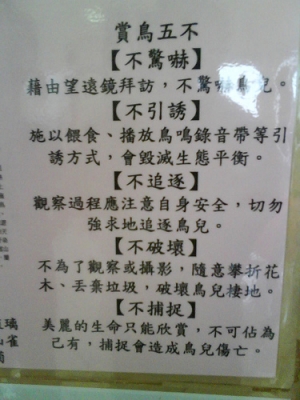 賞鳥五不
【不驚嚇】
藉由望遠鏡拜訪，不驚嚇鳥兒。
【不引誘】
施以餵食、播放鳥鳴錄音帶等引
誘方式，會毀滅生態平衡。
【不追逐】
觀察過程應注意自身安全，切勿
強求地追逐鳥兒。
【不破壞】
不為了觀察或攝影，隨意攀折花
木、丟棄垃圾，破壞鳥兒棲地。
【不捕捉】
美麗的生命只能欣賞，不可佔為
己有，捕捉會造成鳥兒傷亡。